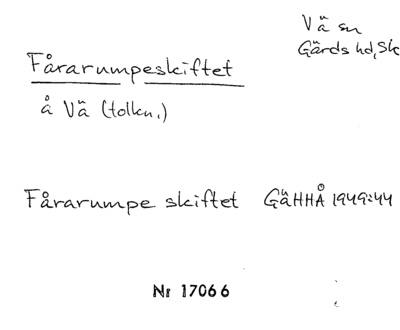 Vä sn
Gärds hd, Sk
Fårarumpeskiftet
å Vä (tolkn.)
Fårarumpe skiftet GäHHÅ 1949:44
Nr 17066